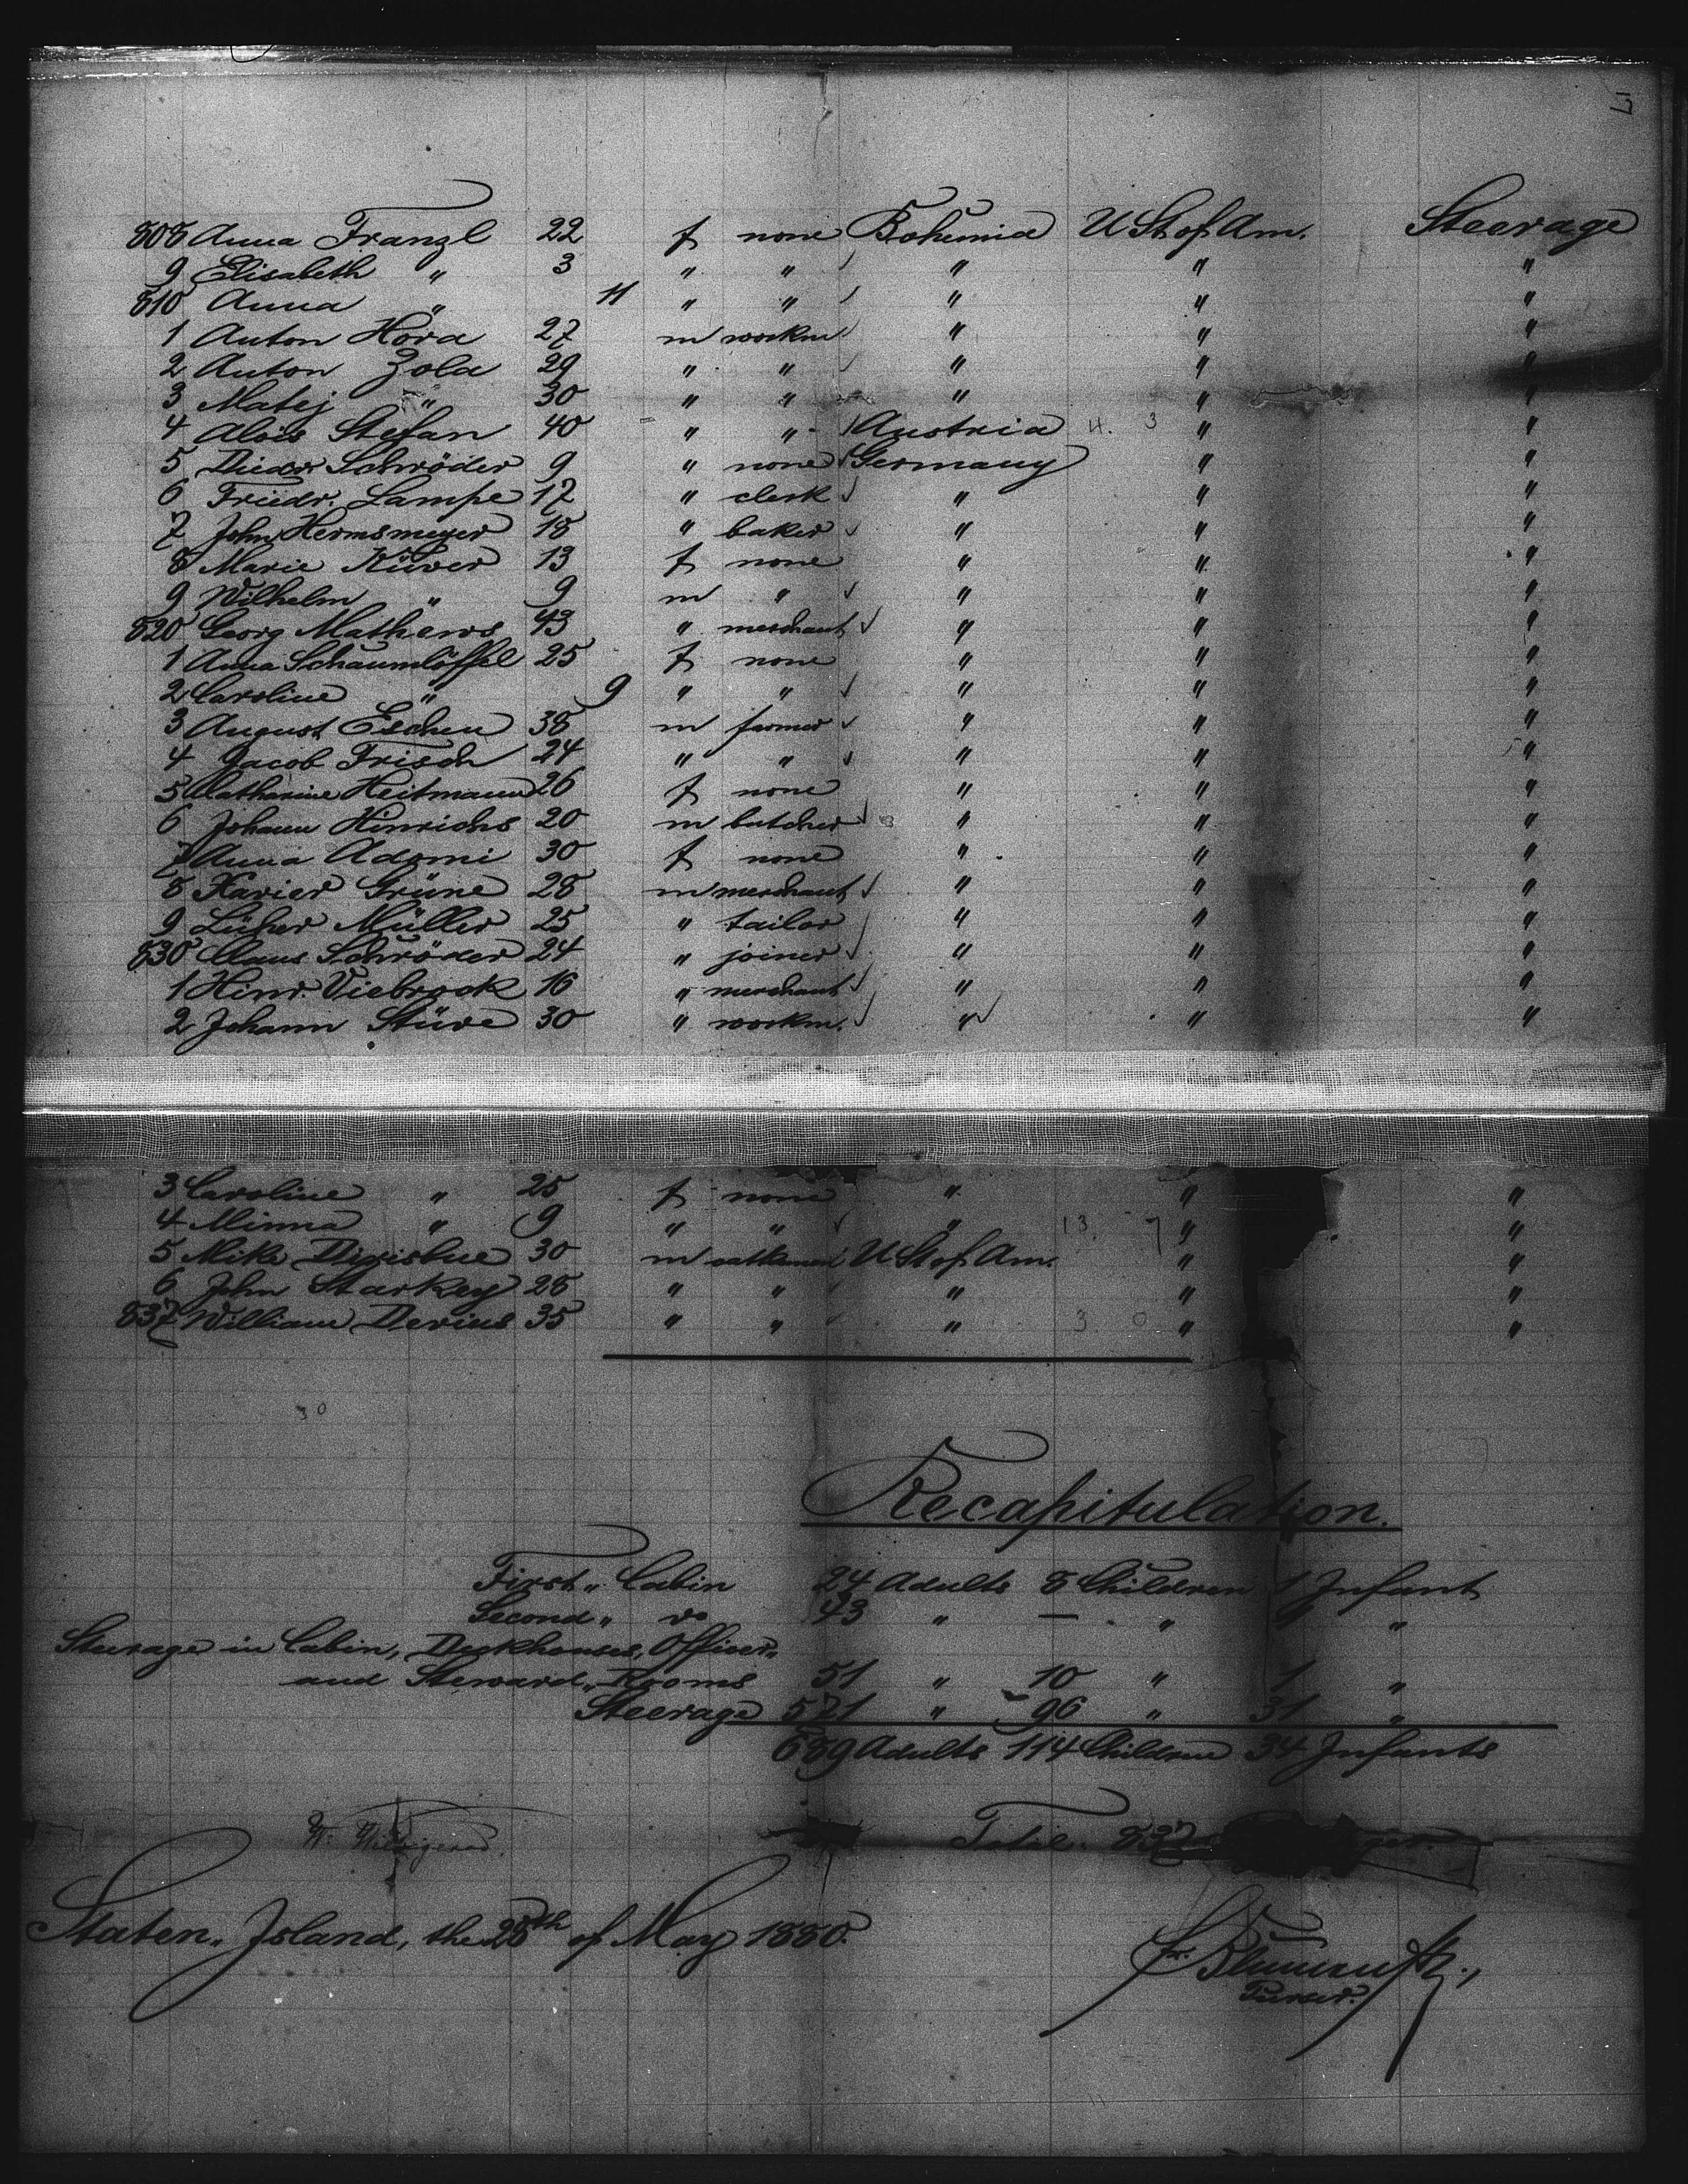 808 Anna Franzl 22 f none Bohemia U St of Am. Steerage
9 Elisabeth " 3 " " " " "
810 Anna " 11 " " " " "
1 Anton Hora 27 m workm " " "
2 Anton Zola 29 " " " " "
3 Matej " 30 " " " " "
4 Alois Stefan 40 " " Austria 4. 3 " "
5 Diedr. Schröder 9 " none Germany " "
6 Friedr. Lampe 17 " clerk " " "
7 John Hermsmeyer 18 " baker " " "
8 Marie Küver 13 f none " " "
9 Wilhelm " 9 m " " " "
820 Georg Mathews 43 " merchant " " "
1 Anna Schaumlöffel 25 f none " " "
2 Caroline " 9 " " " " "
3 August Eschen 38 m farmer " " "
4 Jacob Frisch 24 " " " " "
5 Catharine Heitmann 26 f none " " "
6 Johann Hinrichs 20 m butcher " " "
7 Anna Adomi 30 f none " " "
8 Xavier Grüne 28 m merchant " " "
9 Lüher Müller 25 " tailor " " "
830 Claus Schröder 24 " joiner " " "
1 Hinr. Viebrock 16 " merchant " " "
2 Johann Stüve 30 " workm. " " "
3 Caroline " 25 f none " " "
4 Minna " 9 " " " 13. 7 " "
5 Mike 30 m U St of Am. " "
6 John Starkey 28 " " " " "
837 William Devins 35 " " " 3. 0 " "
30
Recapitulation.
First " Cabin 24 Adults 8 Children 1 Infant
Second " do 43 " — " "
Steerage in Cabin, Deckhouses, Officer"
and Steward " Rooms 51 " 10 " 1 "
Steerage 571 " 96 " 31 "
689 Adults 114 Children 34 Infants
Total: 837
Staten " Island, the 28th of May 1880.
Purser.